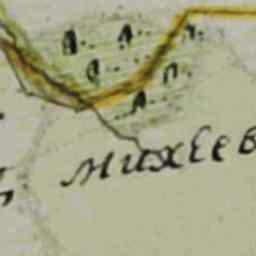 михеев